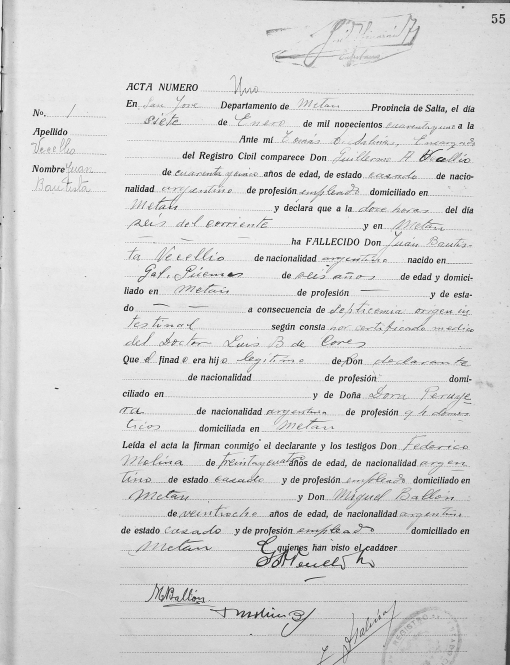 55
ACTA NUMERO Uno
No. 1
En San José Departamento de Metán Provincia de Salta, el día
siete de Enero de mil novecientos cuarentayuno a la
Apellido
Ante mi Tomás Encargado
Vecellio
del Registro Civil comparece Don Guillermo A Vecellio
Nombre Juan
Bautista
de cuarenta años de edad, de estado casado de nacio-
nalidad argentino de profesión empleado domiciliado en
Metán y declara que a la doce horas del día
seis del corriente y en Metán
ha FALLECIDO Don Juan Bautis
ta Vecellio de nacionalidad argentino nacido en
Gral. Güemes de seis años de edad y domici-
liado en Metán de profesión — y de esta-
do — a consecuencia de septicemia origen in
testinal según consta por certificado médico
del Doctor Luis B de Cores
Que el finado era hijo legítimo de Don declarante
de nacionalidad de profesión domi-
ciliado en y de Doña Dora
de nacionalidad argentina de profesión q h domés
ticos domiciliada en Metán
Leída el acta la firman conmigo el declarante y los testigos Don Federico
Molina de treintaycuatro años de edad, de nacionalidad argen
tino de estado casado y de profesión empleado domiciliado en
Metán y Don Miguel Ballón
de veintiocho años de edad, de nacionalidad argentino
de estado casado y de profesión empleado domiciliado en
Metán quienes han visto el cadáver
M Ballón
F Molina